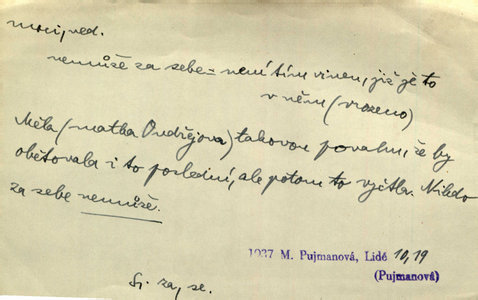 moci, ned.
nemůže za sebe = není tím vinen, již je to
v něm (vrozeno)
Měla (matka Ondřejova) takovou povahu, že by
obětovala i to poslední, ale potom to vyčtla. Nikdo
za sebe nemůže.
1937 M. Pujmanová, Lidé 10, 19
(Pujmanová)
Sr. za, se.